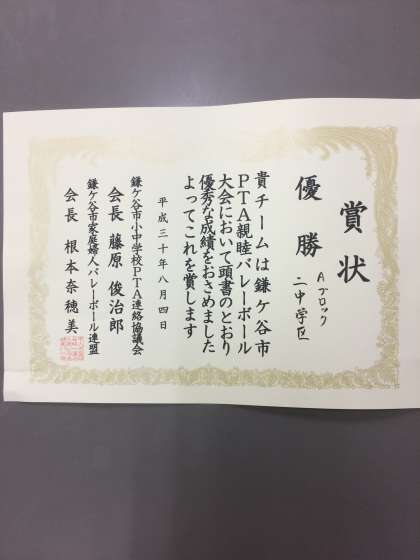 賞状
Aブロック
二中学区
優勝
貴チームは鎌ケ谷市
PTA親睦バレーボール
大会において頭書のとおり
優秀な成績をおさめました
よってこれを賞します
平成三十年八月四日
鎌ケ谷市小中学校PTA連絡協議会
会長 藤原俊治郎
鎌ケ谷市家庭婦人バレーボール連盟
会長 根本奈穂美